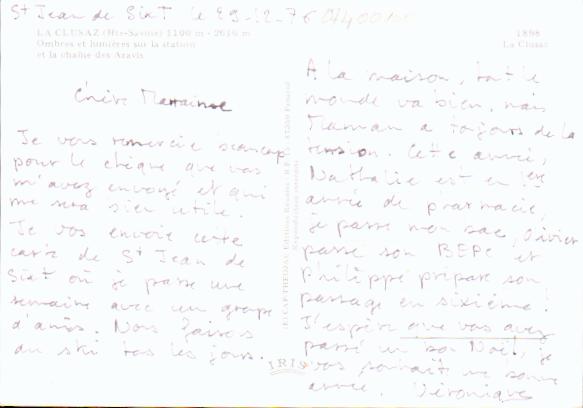 St Jean de Sixt le 29-12-76
LA CLUSAZ (Hte-Savoie) 1100 m - 2616 m
Ombres et lumières sur la station
et la chaîne des Aravis
1898
La Clusaz
Chère Marraine
Je vous remercie beaucoup
pour le chèque que vous
m'avez envoyé et qui
me sera bien utile.
Je vous envoie cette
carte de St Jean de
Sixt où je passe une
semaine avec un groupe
d'amis. Nous faisons
du ski tous les jours.
IRIS
A la maison, tout le
monde va bien, mais
Maman a toujours de la
tension. Cette année,
Nathalie est en 1ère
année de pharmacie,
je passe mon bac, Olivier
passe son BEPC et
Philippe prépare son
passage en sixième!
J'espère que vous avez
passé un bon Noël, je
vous souhaite une bonne
année. Véronique